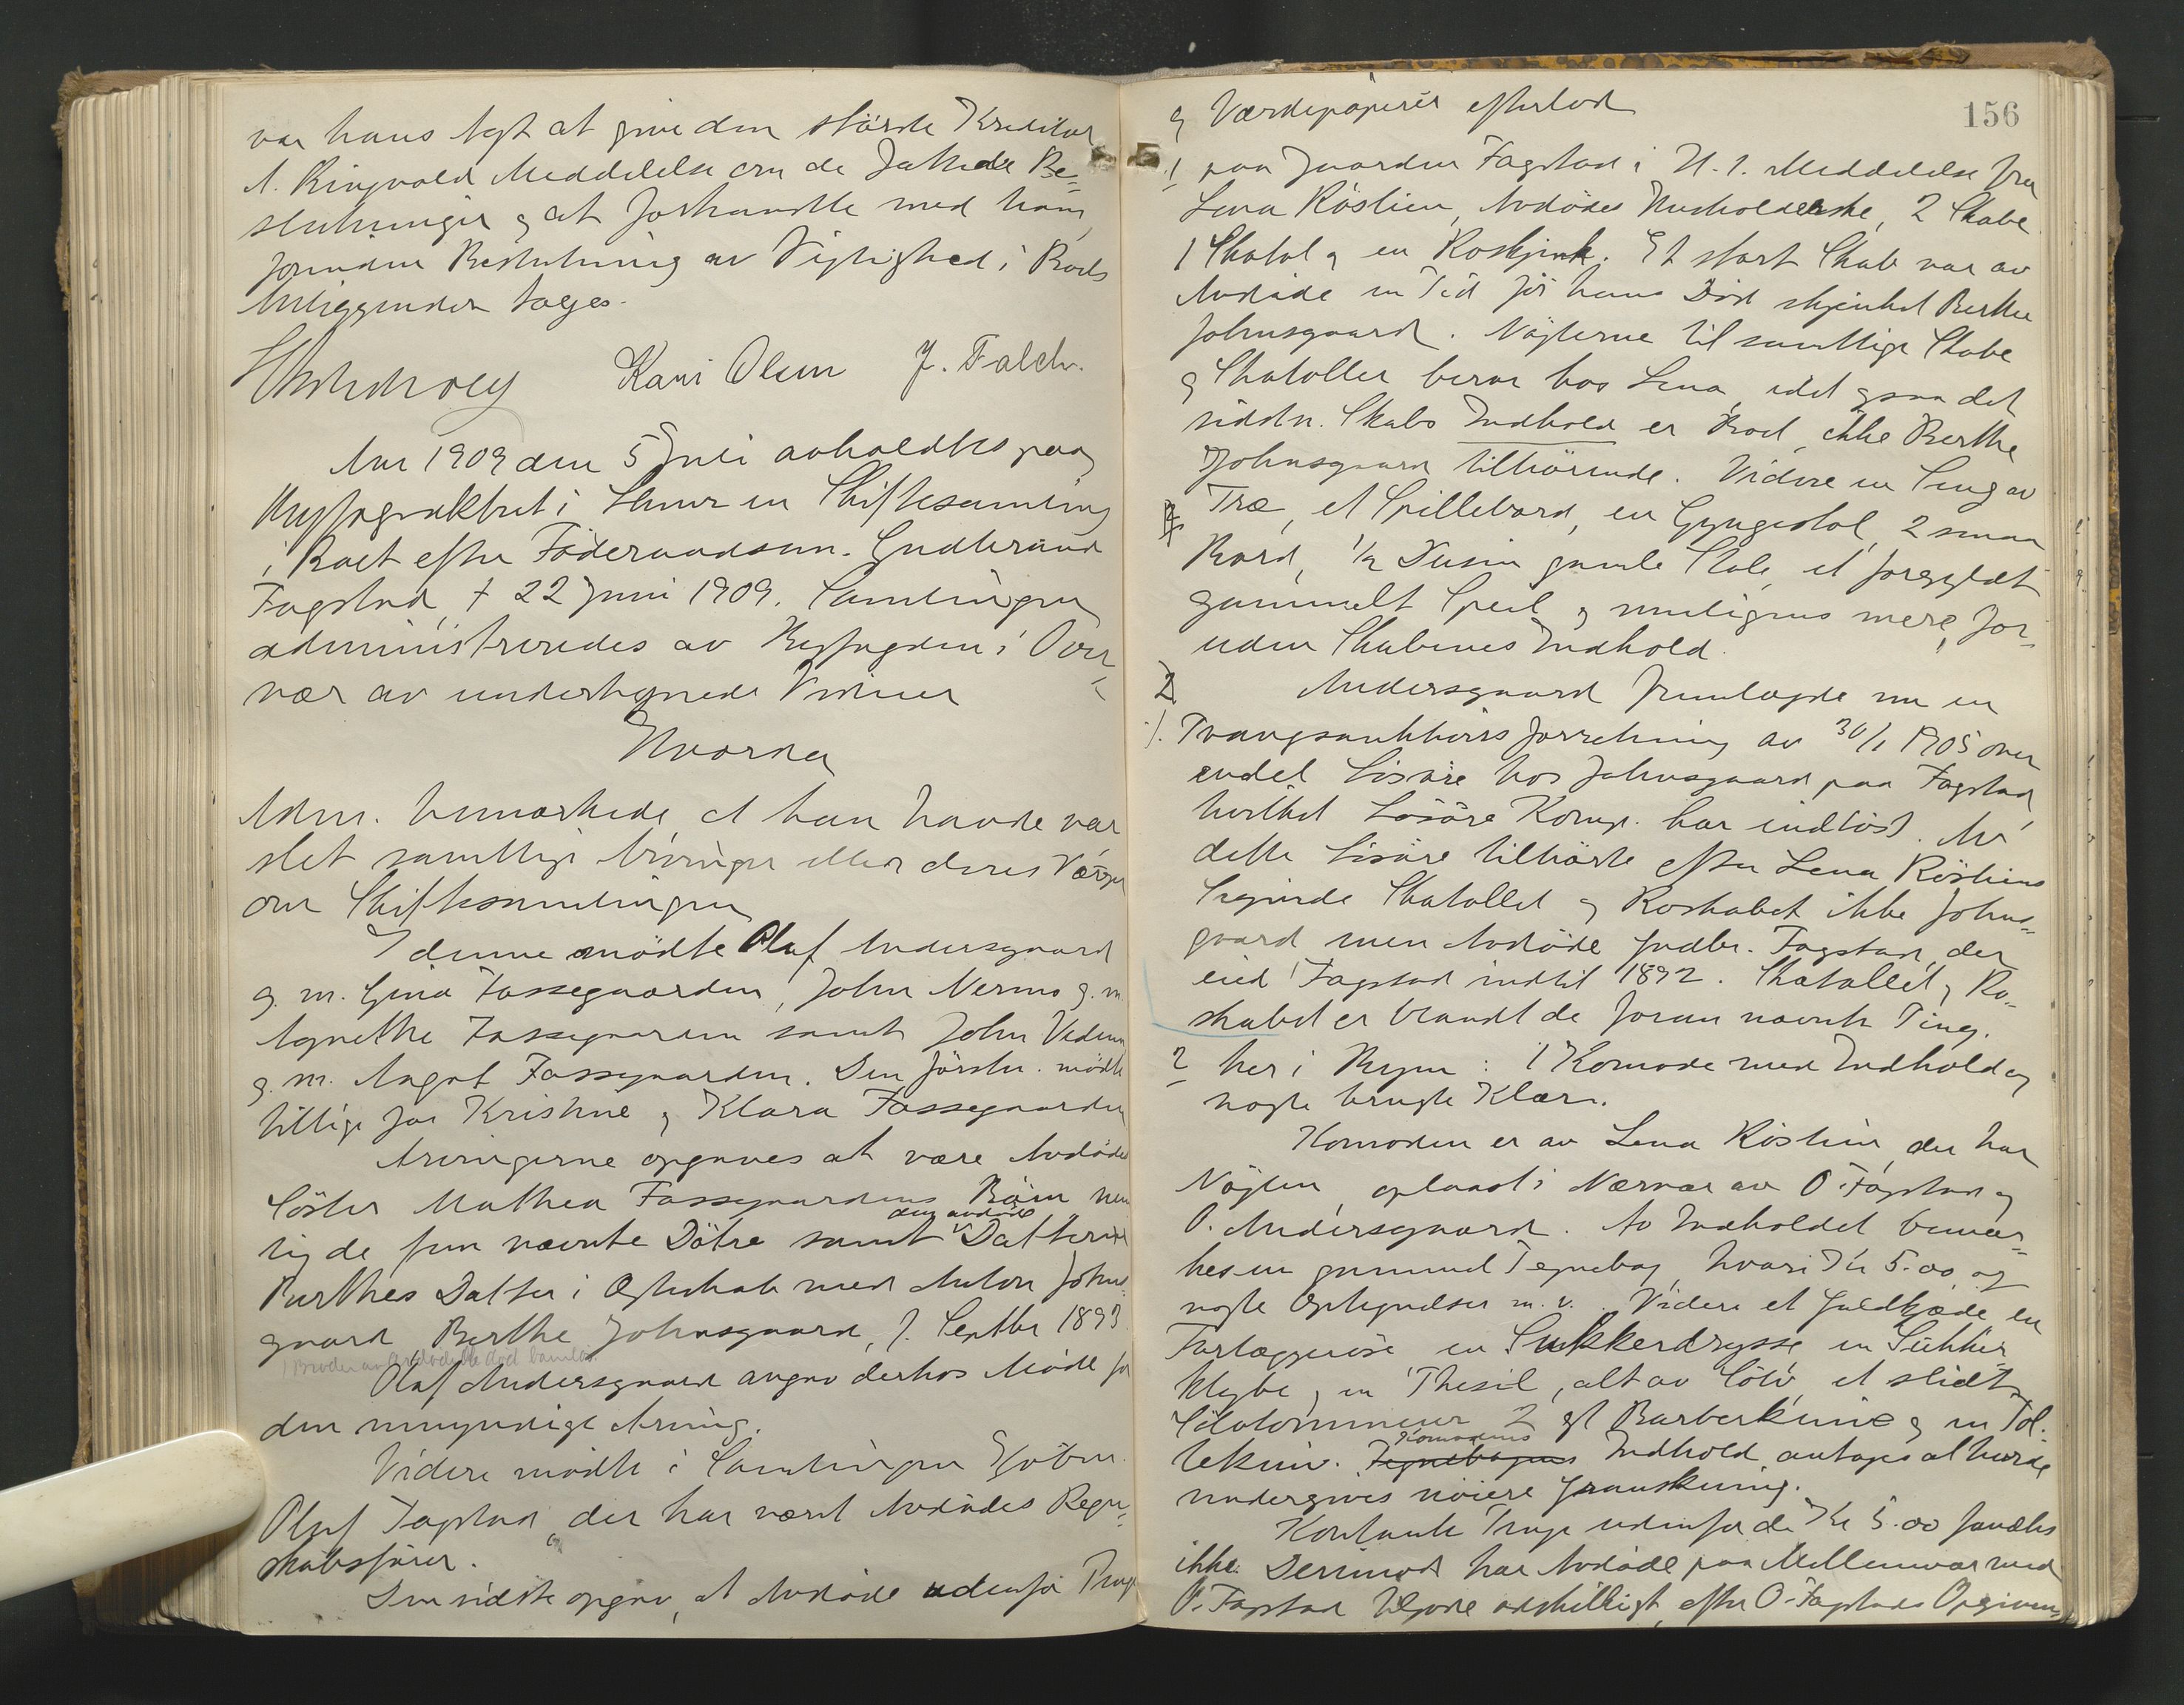 var hans Agt at give den største Kreditor
A. Ringvold Meddelelse om de fattede Be-
slutninger og at forhandle med ham,
forinden Beslutning av Vigtighed i Boets
Anliggender tages.
Kari Olsen J. Falch.
Aar 1909 den 5 Juli avholdtes paa
Byfogedkontoret i Hamar en Skiftesamling
i Boet efter Føderaadsmn. Gudbrand
Fagstad, † 22 Juni 1909. Samlingen
administreredes av Byfogden i Over-
vær av undertegnede Vidner
Hvorda
Adm. bemærkede at han havde var
slet samtlige Arvinger eller deres Værger
om Skiftesamlingen
I denne mødte Olaf Andersgaard
g. m. Gina Fossegaarden, John Nermo g. m.
Agnethe Fossegaarden samt John Vedum
g. m. Angot Fossegaarden. Den førstn. mødte
tillige for Kristine og Klara Fossegaarden
Arvingerne opgaves at være Avdødes
Søster Mathea Fossegaardens Børn nem
lig de fem nævnte Døtre samt den avdøde Datter
Berthes Datter i Ægteskab med Anton Johns-
gaard, Berthe Johnsgaard, f. Septbr 1893.
1 Broder av Avdøde er død barnløs.
Olaf Andersgaard angav derhos Møde for
den umyndige Arving.
Videre mødte i Samlingen Kjøbm.
Olaf Fagstad, der har været Avdødes Regn-
skabsfører.
Den sidste opgav, at Avdøde udenfor Penge
156
og Værdipapirer efterlod
1 paa Gaarden Fagstad i H. 1. Meddelelse fra
Lena Röstien, Avdødes Husholderske, 2 Skabe
1 Chatol og en Roskjenk. Et stort Skab var av
Avdøde en Tid før hans Død skjenket Berthe
Johnsgaard. Nøglerne til samtlige Skabe
og Chatoller beror hos Lena, idet ogsaa det
sidstn. Skabs Indhold er Boet, ikke Berthe
Johnsgaard tilhørende. Videre en Seng av
Træ, et Spillebord, en Gyngestol, 2 smaa
Bord, ½ Dusin gamle Stole, et forgyldt
gammelt Speil og muligens mere, for-
uden Skabenes Indhold.
2 Andersgaard fremlagde nu en
Tvangsauktions forretning av 30/1 1905 over
endel Løsøre hos Johnsgaard paa Fagstad,
hvilket Løsøre Komp. har indløst. Av
dette Løsøre tilhørte efter Lena Röstiens
Sigende Chatollet og Roskabet ikke Johns-
gaard men Avdøde Gudbr. Fagstad, der
eied Fagstad indtil 1892. Chatollet og Ro-
skabet er blandt de foran nævnte Ting.
2 her i Byen: 1 Komode med Indhold og
nogle brugte Klær.
Komoden er av Lena Röstien, der har
Nøglen, oplaast i Nærvær av O. Fagstad og
O. Andersgaard. Av Indholdet bemær-
kes en gammel Tegnebog, hvori Kr 5.00 og
nogle Optegnelser m. v. Videre et Guldkjæde, en
Forlæggerøse, en Sukkerdrysse, en Sukker
klype og en Thesil, alt av Sølv, et slidt
Sølvlommeur, 2 gl Barberknive og en Tol-
lekniv. Tegnebogens Komodens Indhold antages at burde
undergives nøiere Granskning.
Kontante Penge udenfor de Kr 5.00 fandtes
ikke. Derimod har Avdøde paa Mellemvær med
O. Fagstad tilgode adskilligt, efter O. Fagstads Opgivende